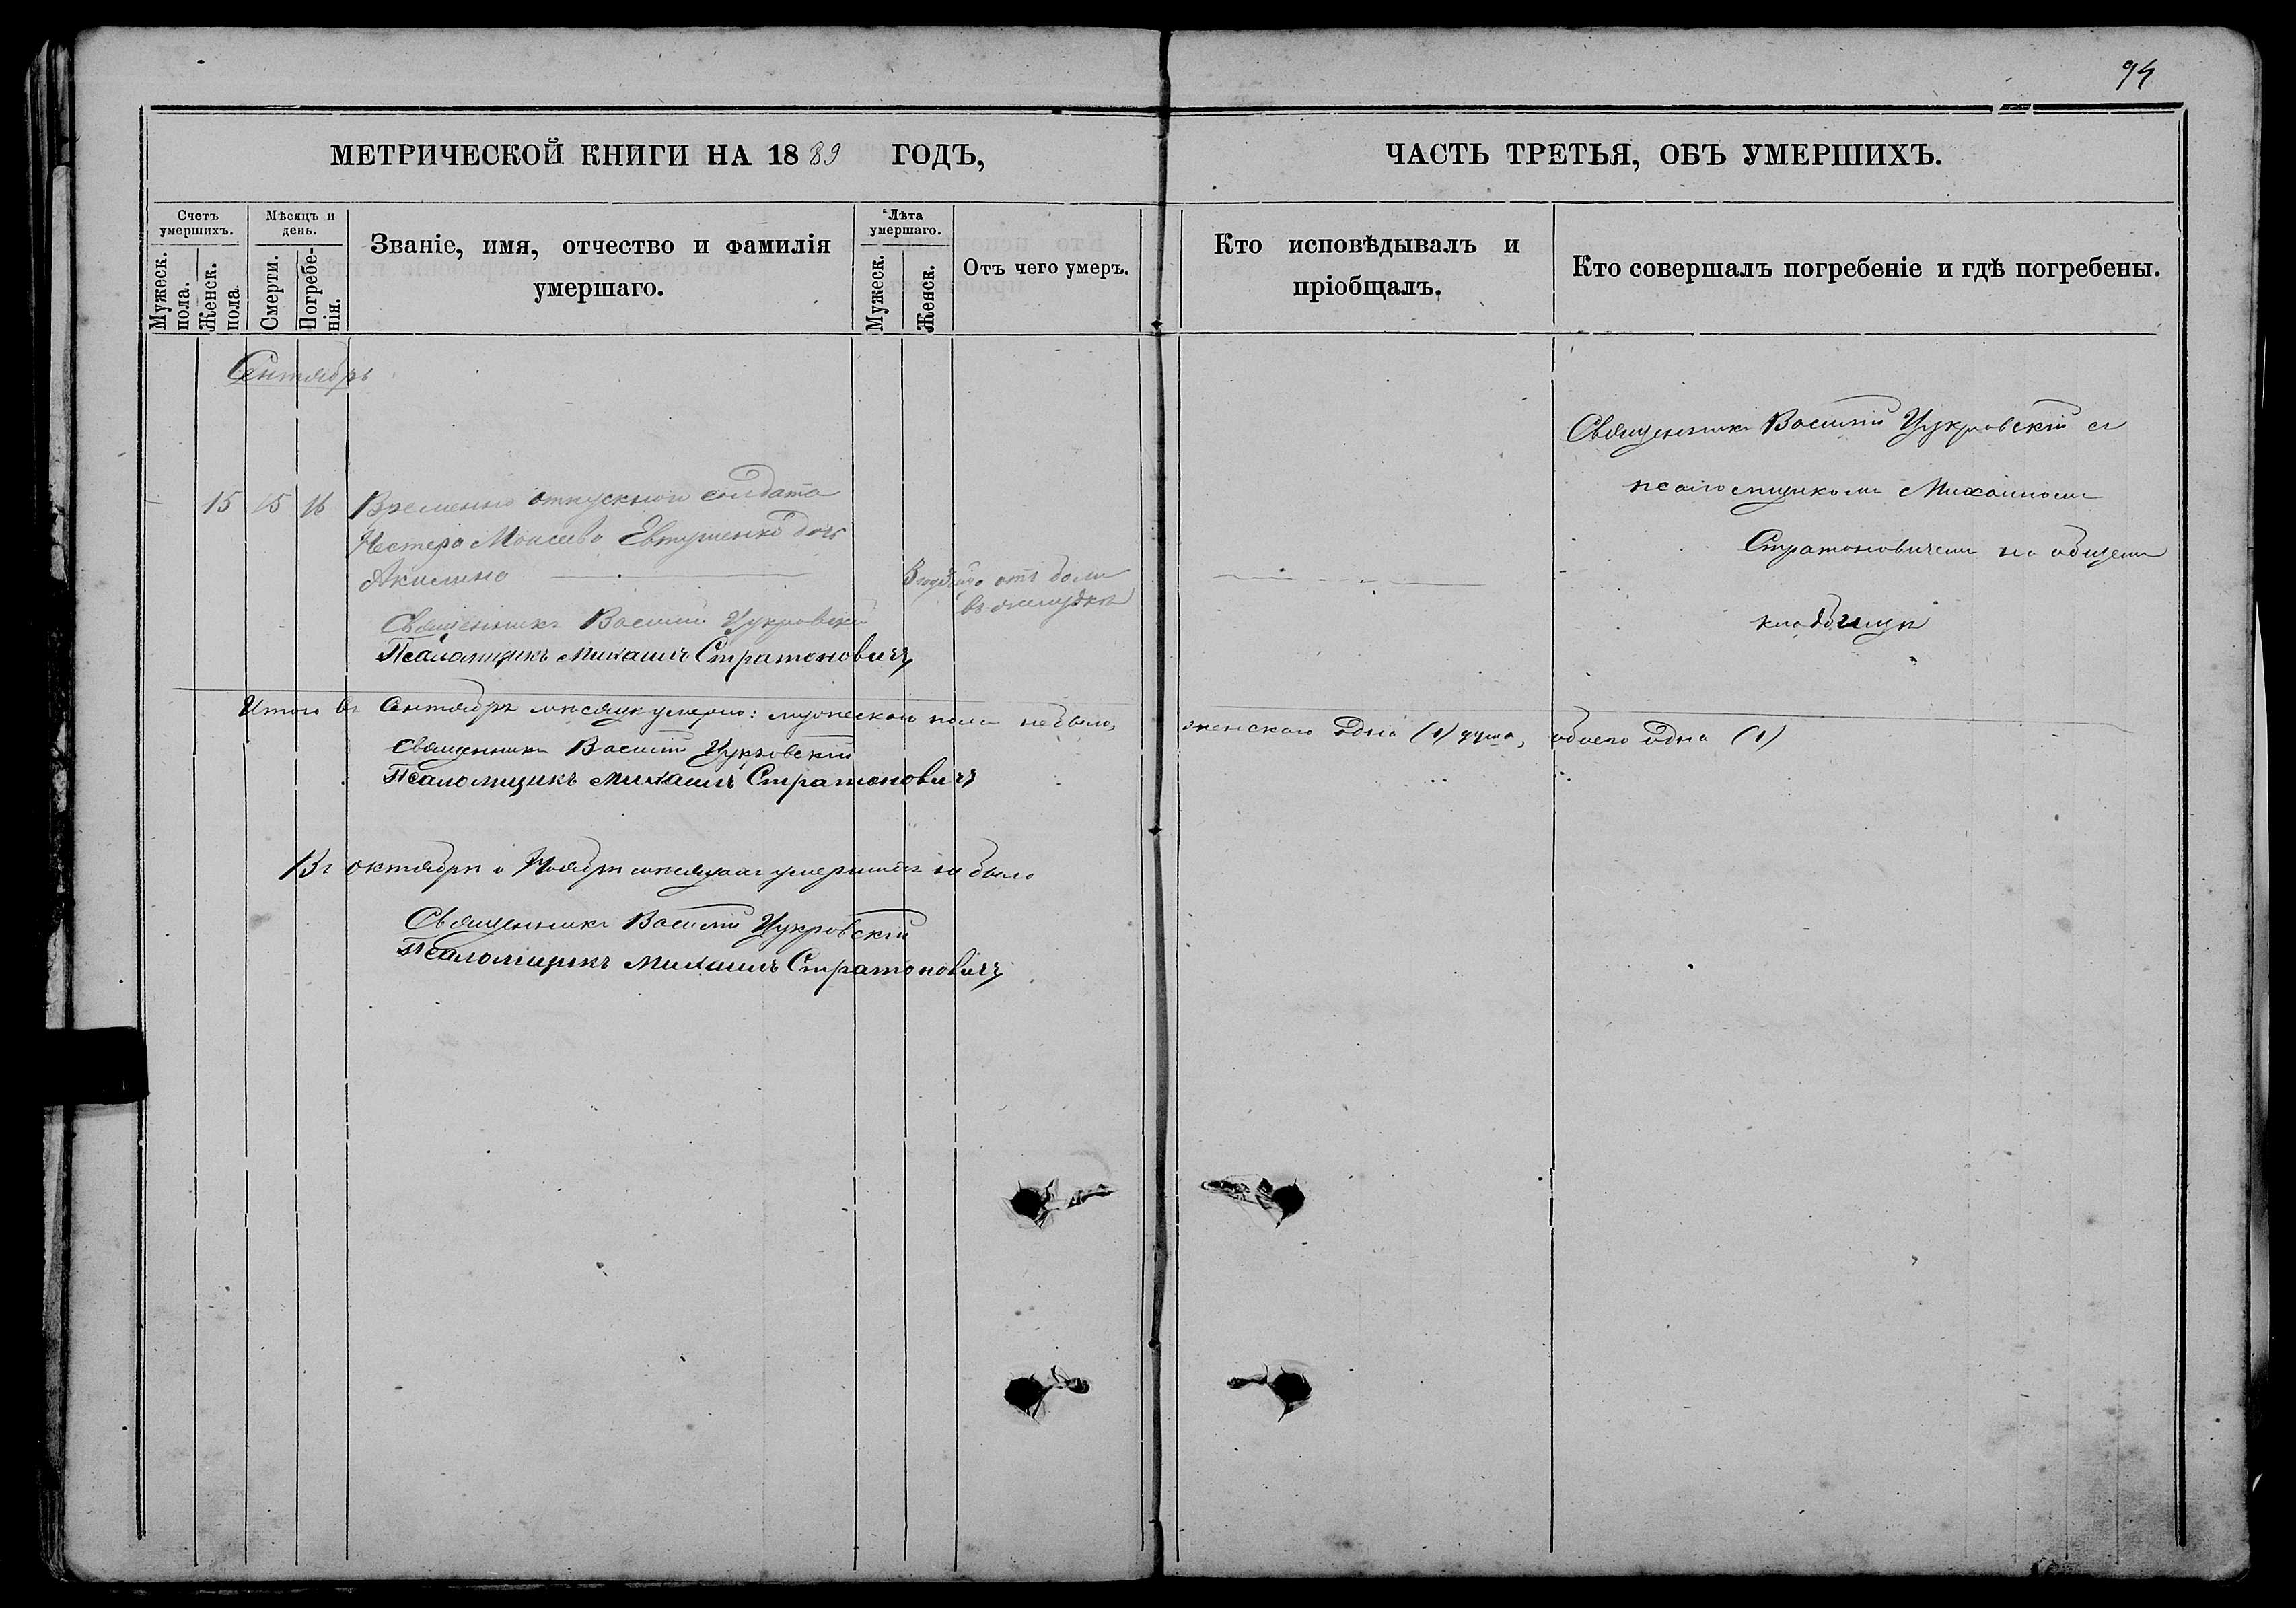 94
МЕТРИЧЕСКОЙ КНИГИ НА 1889 ГОДЪ,
ЧАСТЬ ТРЕТЬЯ, ОБЪ УМЕРШИХЪ.
Счетъ умершихъ.
Мужеск. пола.
Женск. пола
Мѣсяцъ и день.
Смерти.
Погребенія.
Званіе, имя, отчество и фамилія
умершаго.
Лѣта умершаго.
Мужеск.
Женск.
Отъ чего умеръ.
Кто исповѣдывалъ и
пріобщалъ.
Кто совершалъ погребеніе и гдѣ погребены.
Сентябрь
15 15 16 Временно отпускнаго солдата
Нестера Моисеева Евтушенко дочь
Акилина
отъ боли
въ желудкѣ
Священникъ Василій Цукровскій съ
псаломщикомъ Михаиломъ
Стратоновичемъ на общемъ
кладбищѣ
Священникъ Василій Цукровскій
Псаломщикъ Михаилъ Стратоновичъ
Итого въ Сентябрѣ мѣсяцѣ умерло: мужескаго пола небыло, женскаго одна (1) душа, обоего одна (1)
Священникъ Василій Цукровскій
Псаломщикъ Михаилъ Стратоновичъ
Въ октябрѣ и Ноябрѣ мѣсяцахъ умершихъ не было
Священникъ Василій Цукровскій
Псаломщикъ Михаилъ Стратоновичъ